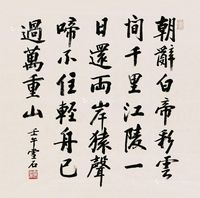 朝辭白帝彩雲
間千里江陵一
日還兩岸猿聲
啼不住輕舟已
過萬重山
壬午石